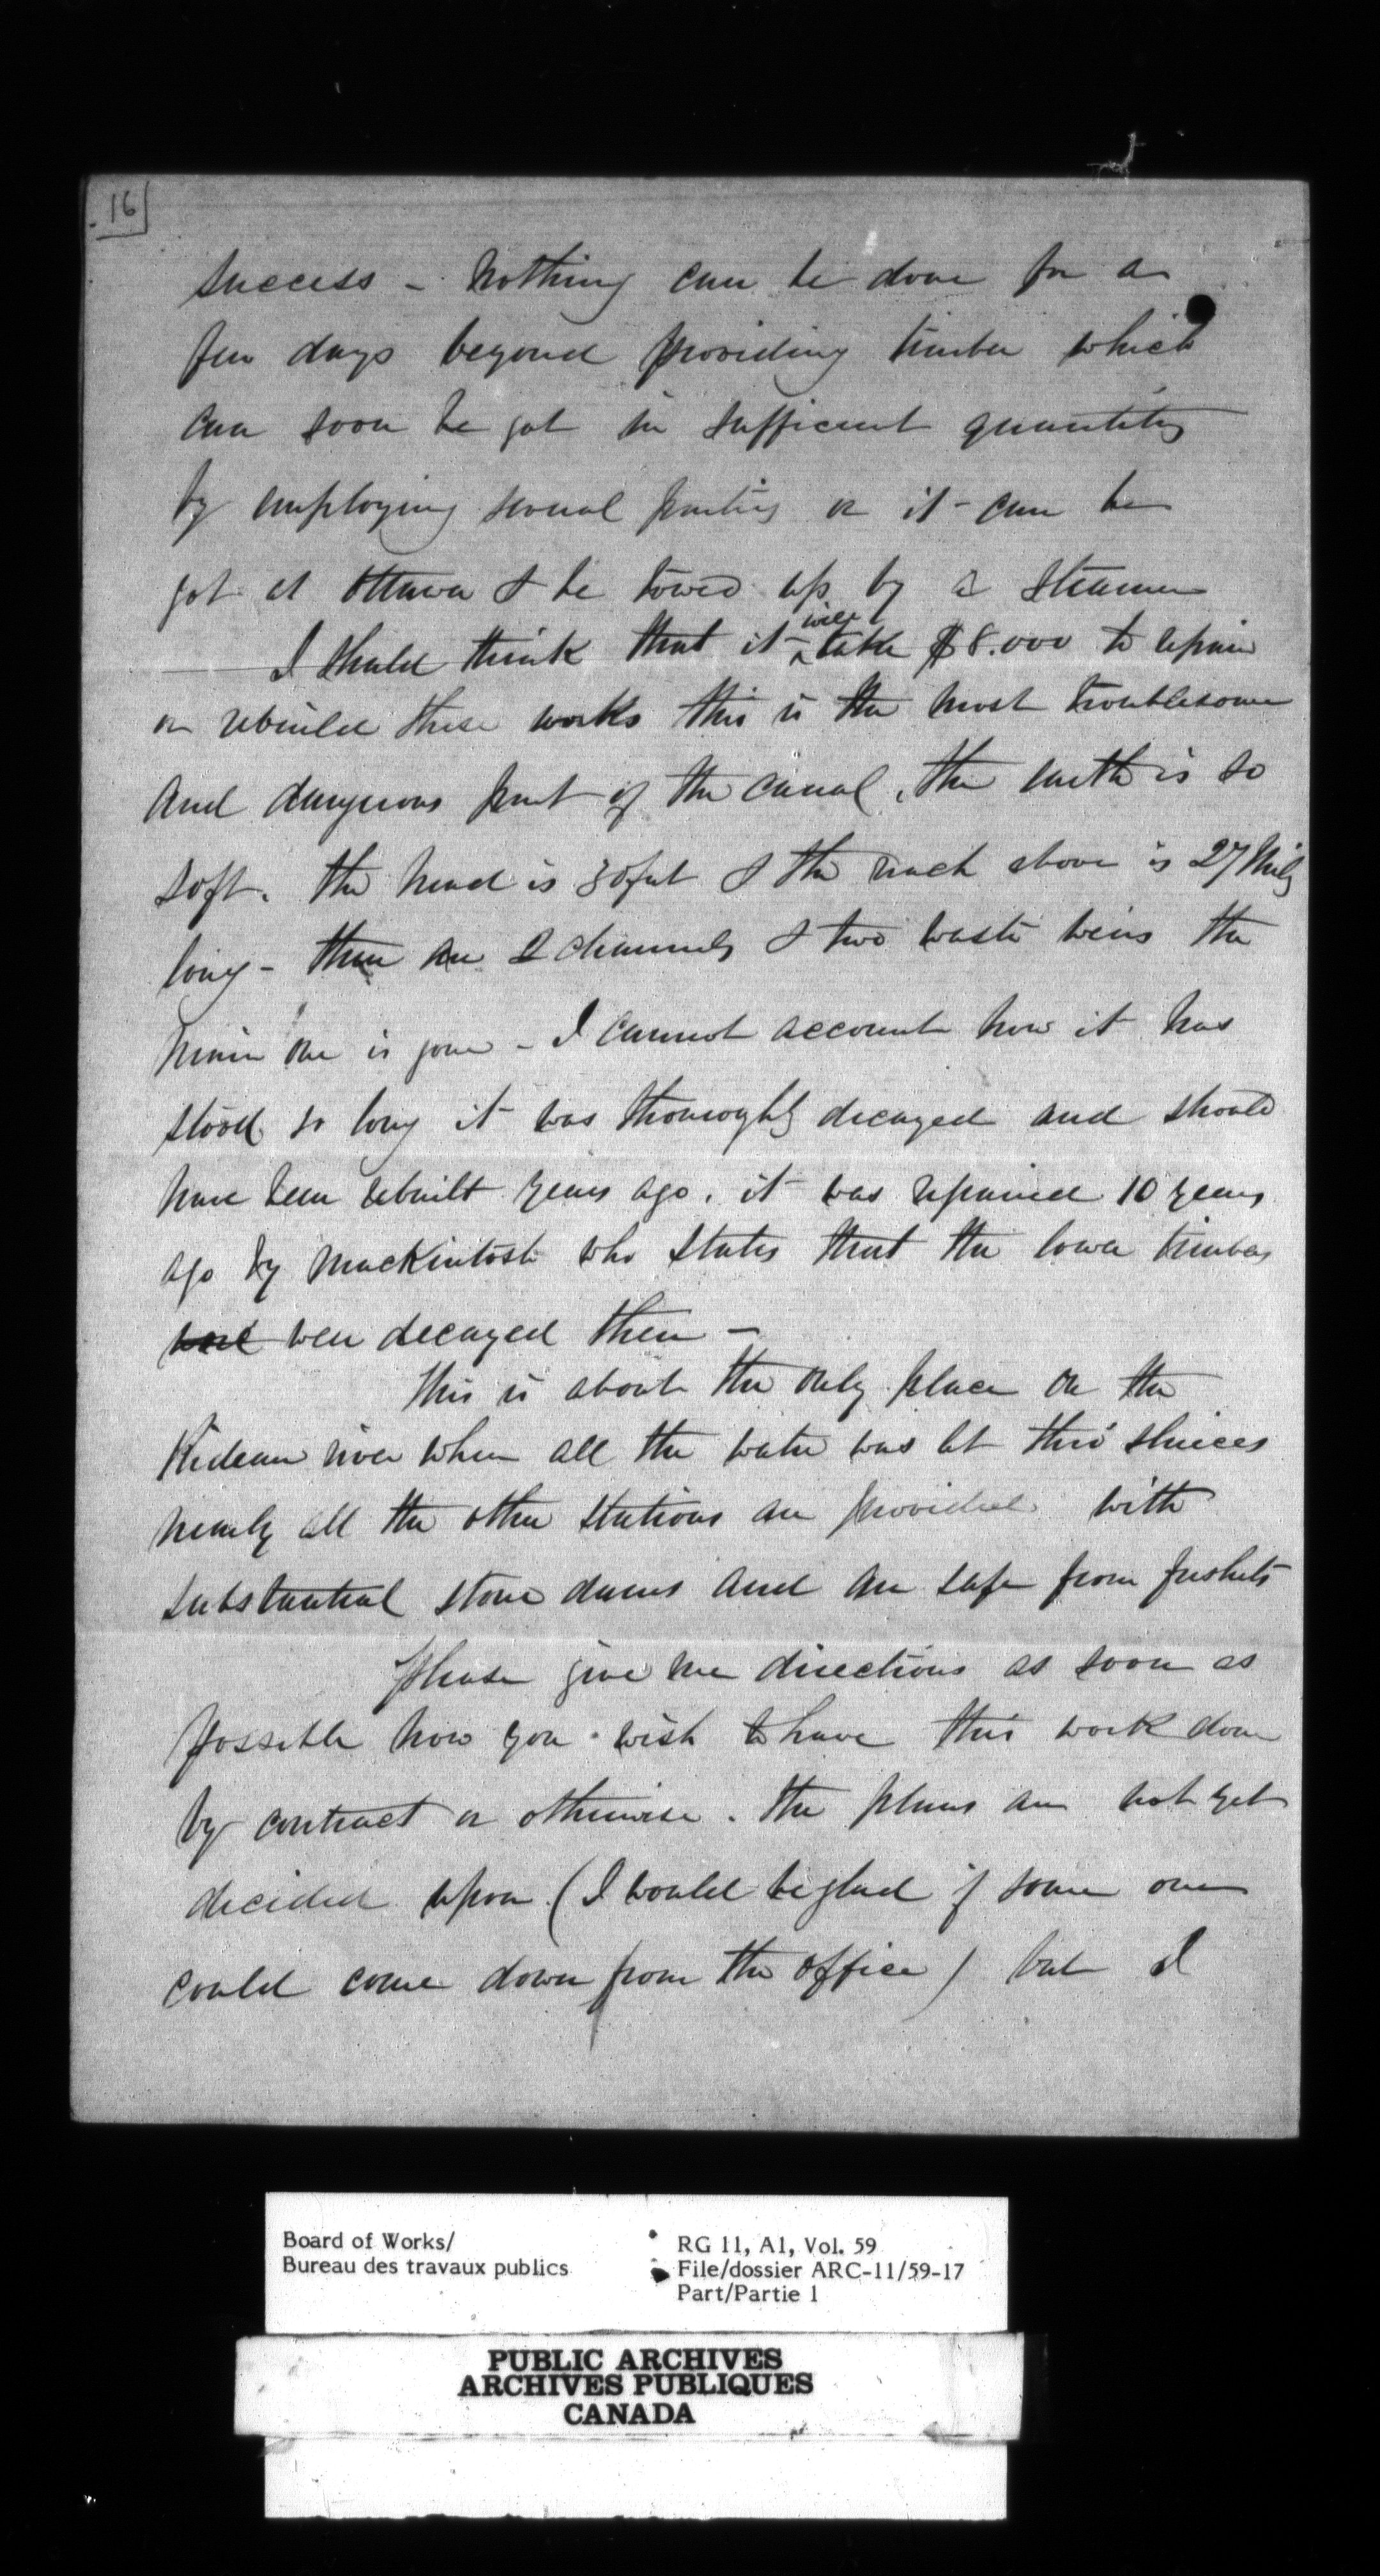 16
success - nothing can be done for a
few days beyond providing timber which
can soon be got in sufficient quantity
by employing several parties or it can be
got at Ottawa & be towed up by a steamer
will
I should think that it take $8.000 to repair
or rebuild these works this is the most troublesome
and dangerous part of the canal, the earth is so
soft. the head is 30 feet & the reach above is 27 Miles
long - there are 2 channels & two waste weirs the
main one is gone - I cannot account how it has
stood so long it was thoroughly decayed and should
have been rebuilt years ago. it was repaired 10 years
ago by MacKintosh who states that the lower timbers
were were decayed then -
this is about the only place on the
Rideau river where all the water was let thro' sluices
nearly all the other stations are provided with
substantial stone dams and are safe from freshets
Please give me directions as soon as
possible how you wish to have this work done
by contract or otherwise. the plans are not yet
decided upon (I would be glad if some one
could come down from the office) but I
Board of Works/
Bureau des travaux publics
RG 11, A1, Vol. 59
File/dossier ARC-11/59-17
Part/Partie 1
PUBLIC ARCHIVES
ARCHIVES PUBLIQUES
CANADA